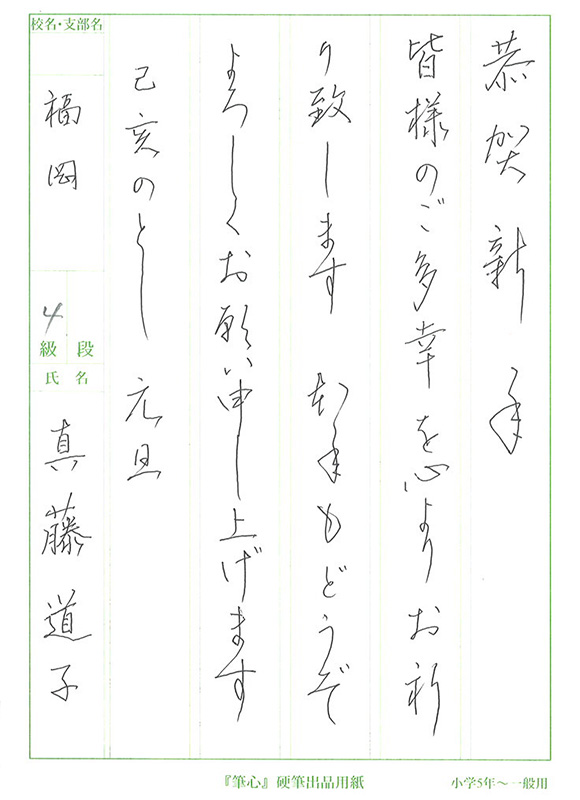 恭賀新年
皆様のご多幸を心よりお祈
り致します 本年もどうぞ
よろしくお願い申し上げます
己亥のとし 元旦
校名・支部名
福岡
4
級 段
氏名
真藤道子
『筆心』硬筆出品用紙
小学5年〜一般用